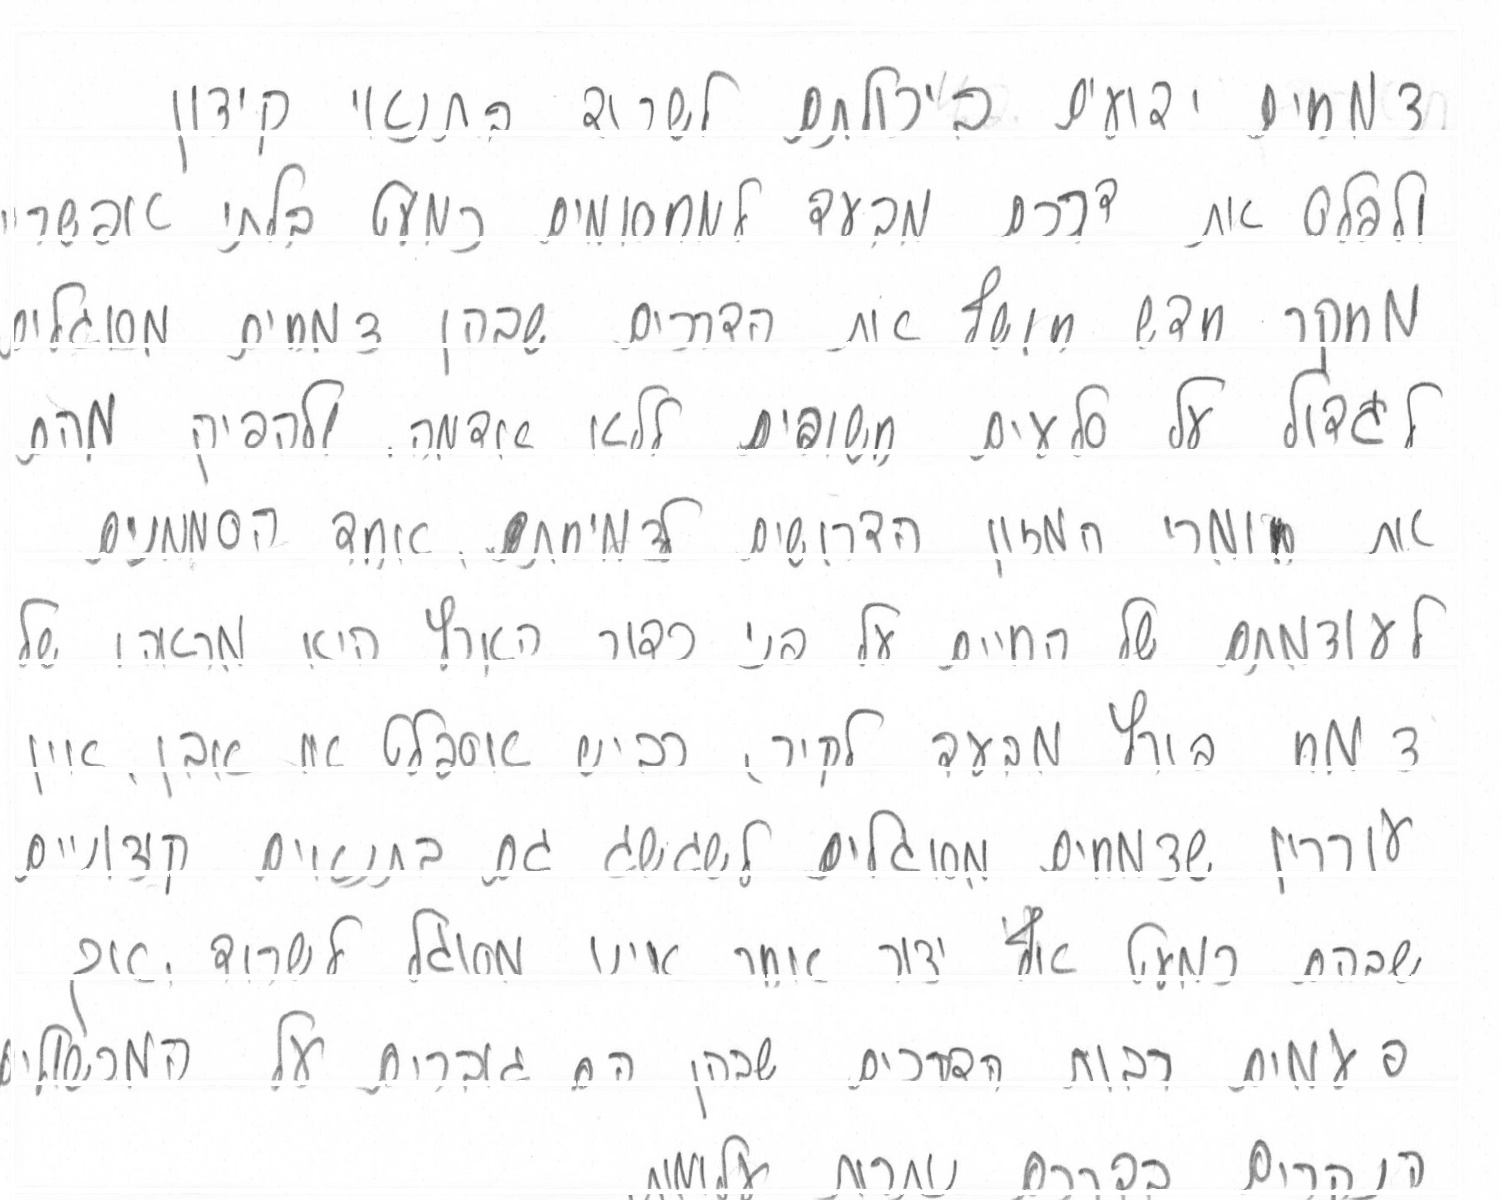 צמחים ידועים ביכולתם לשרוד בתנאי קיצון
ולפלס את דרכם מבעד למחסומים כמעט בלתי אפשריי
מחקר חדש חושף את הדרכים שבהן צמחים מסוגלים
לגדול על סלעים חשופים ללא אדמה, ולהפיק מהם
את חומרי המזון הדרושים לצמיחתם. אחד הסממנים
לעוצמתם של החיים על פני כדור הארץ היא מראהו של
צמח בורץ מבעד לקיר, כביש אספלט או אבן, אין
עוררין שצמחים מסוגלים לשגשג גם בתנאים קיצוניים
שבהם כמעט אף יצור אחר אינו מסוגל לשרוד, אך
פעמים רבות הדרכים שבהן הם גוברים על המכשולים
הנקרים בדרכם נותרות עלומות